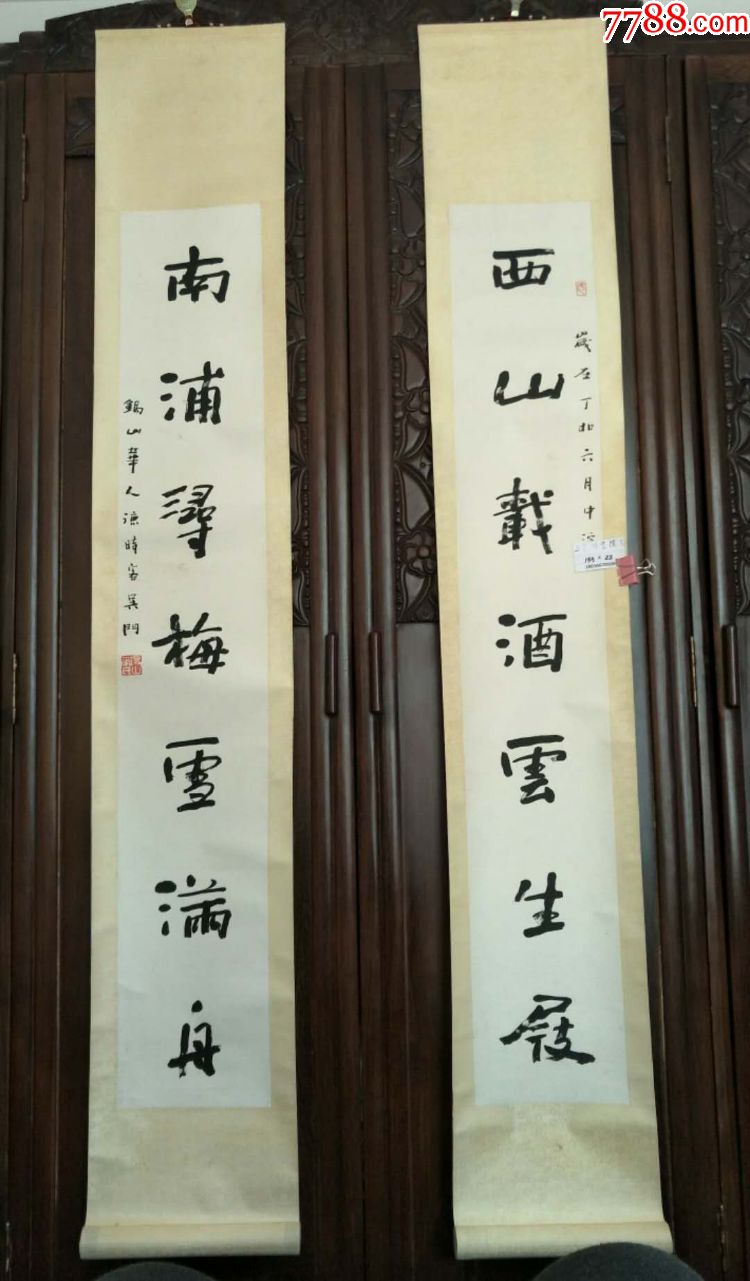 7788.com
西山載酒雲生屐
歲在丁丑六月中
南浦尋梅雪滿舟
錫山華人德時客吳門